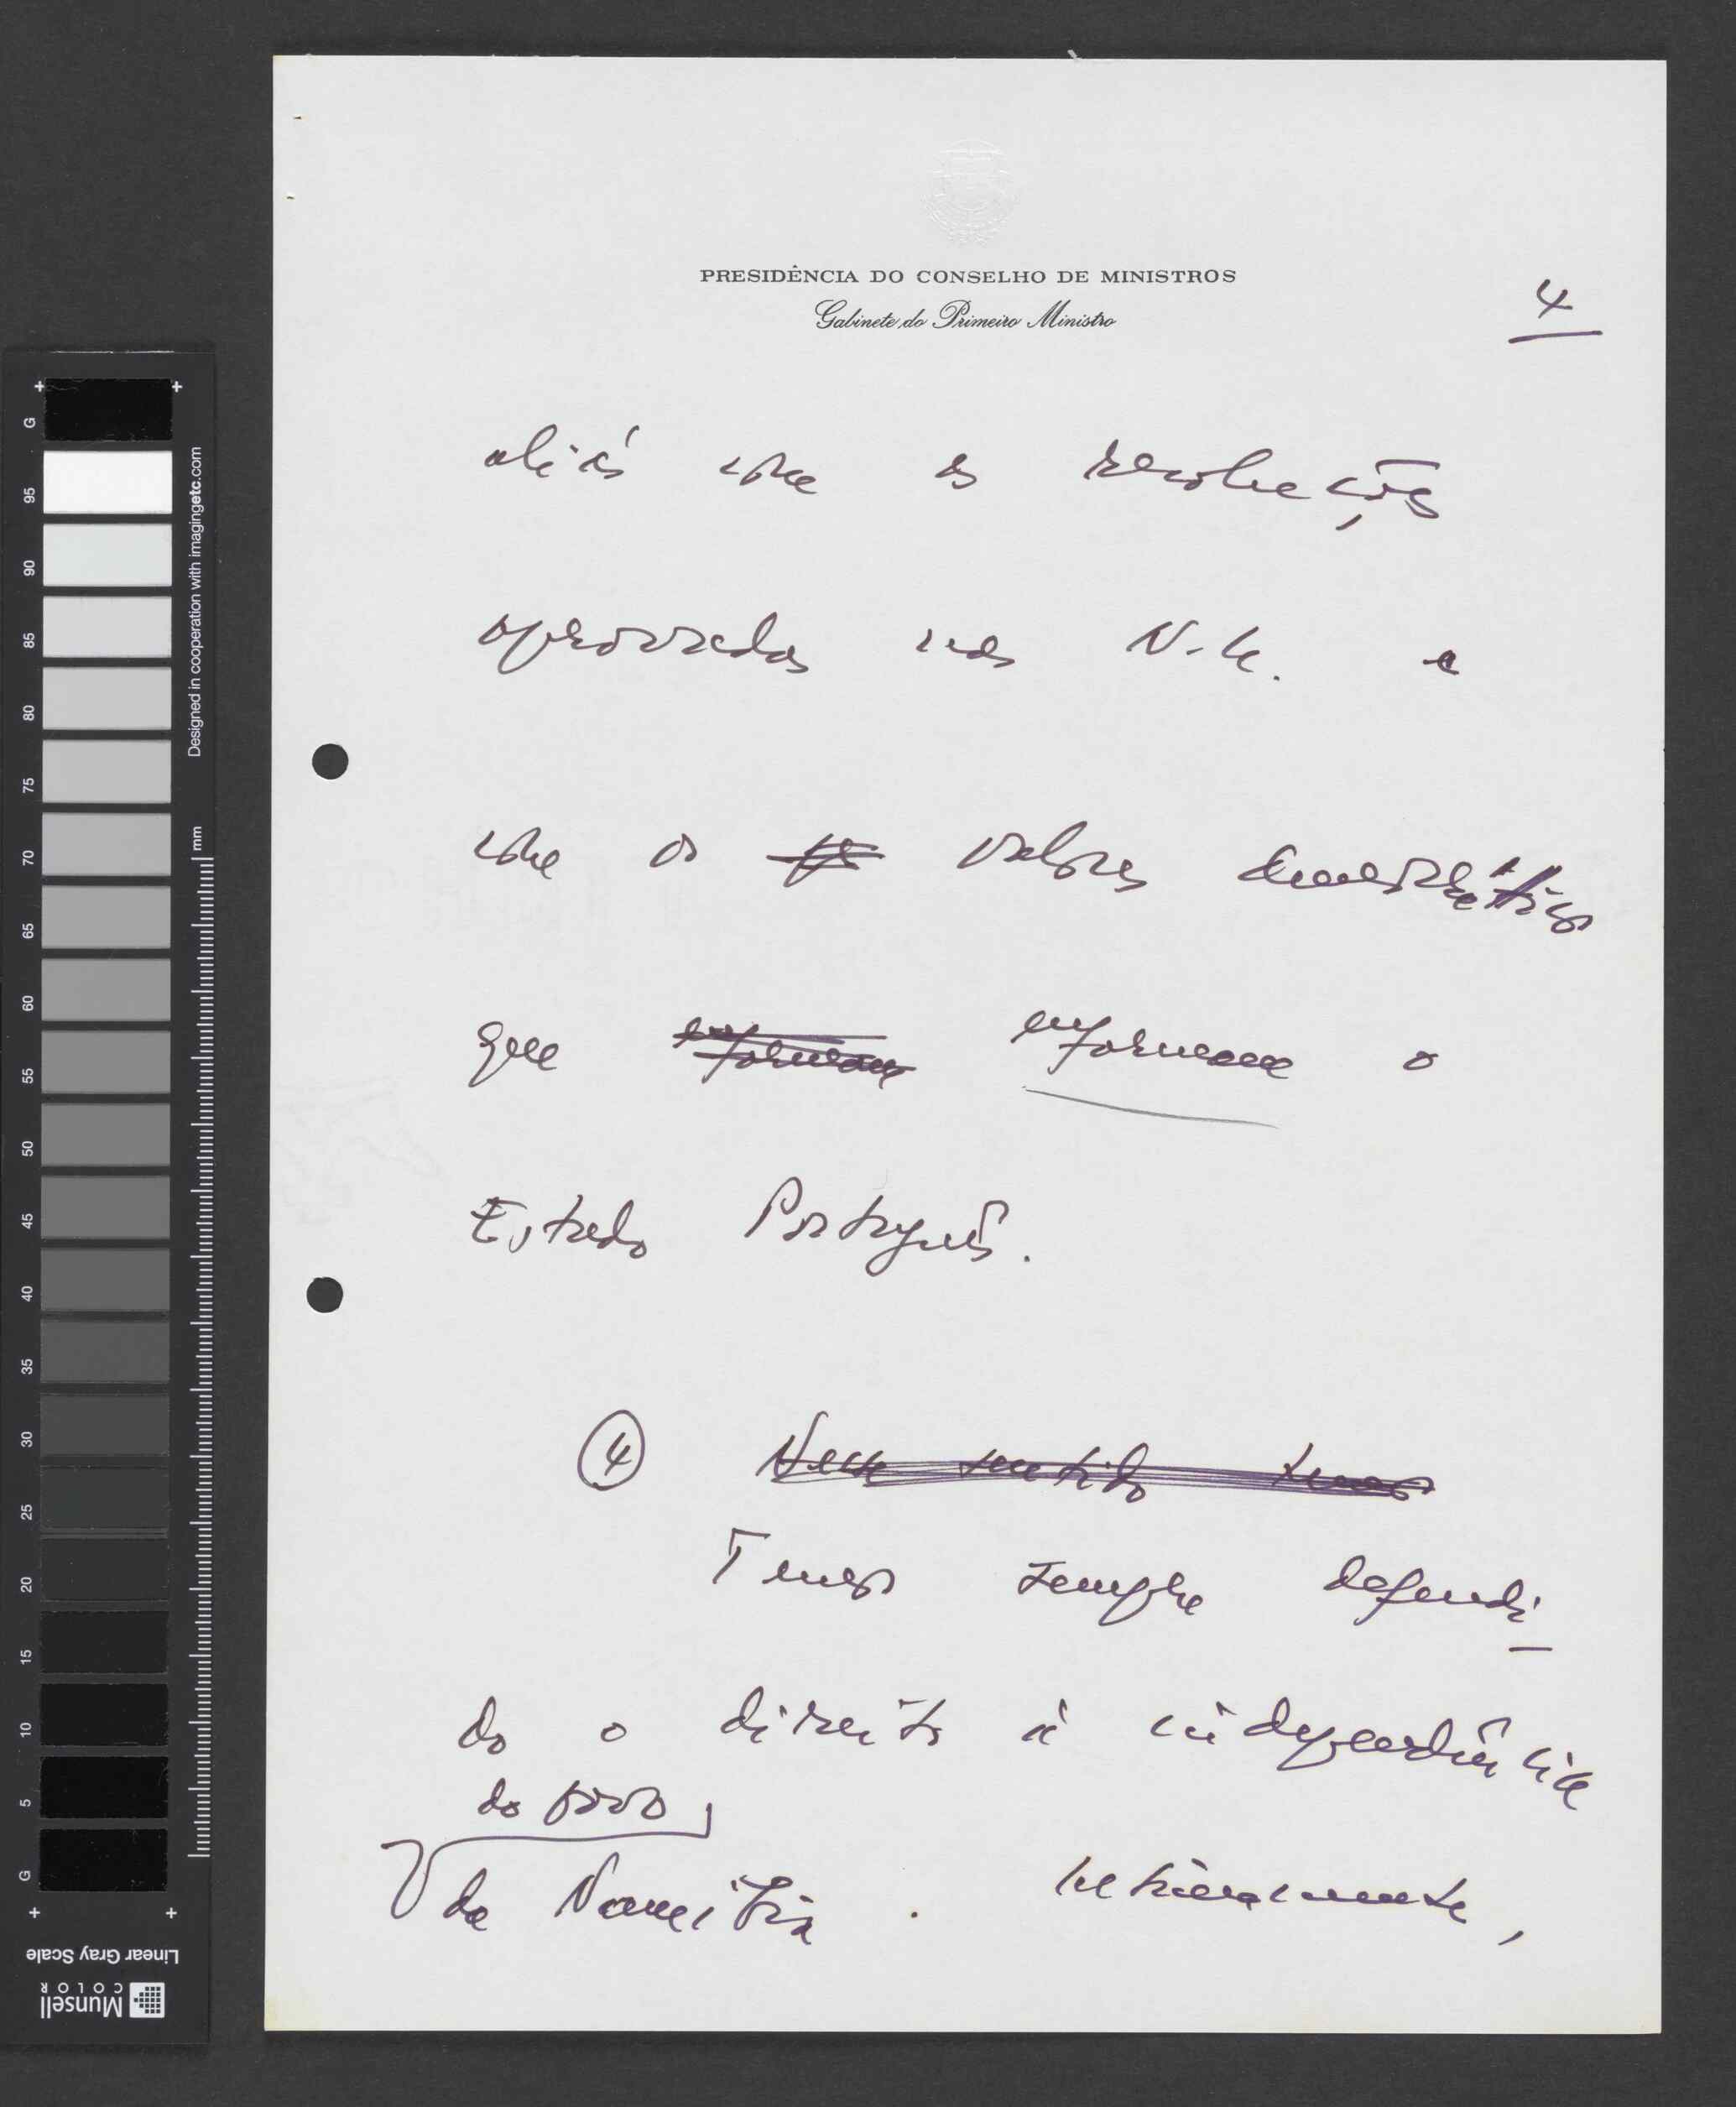 PRESIDÊNCIA DO CONSELHO DE MINISTROS
Gabinete do Primeiro Ministro
4
aliás com as resoluções
aprovadas nas N.U. e
com os valores democráticos
que enformam enformam o
Estado Português.
4 Nesse sentido temos
Temos sempre defendi-
do o direito à independência
do povo
da Namíbia. Ultimamente,
G 95 90 85 80 75 70 65 60 55 50 45 40 35 30 25 20 15 10 5 G
Designed in cooperation with imagingetc.com
mm
Linear Gray Scale
Munsell
COLOR